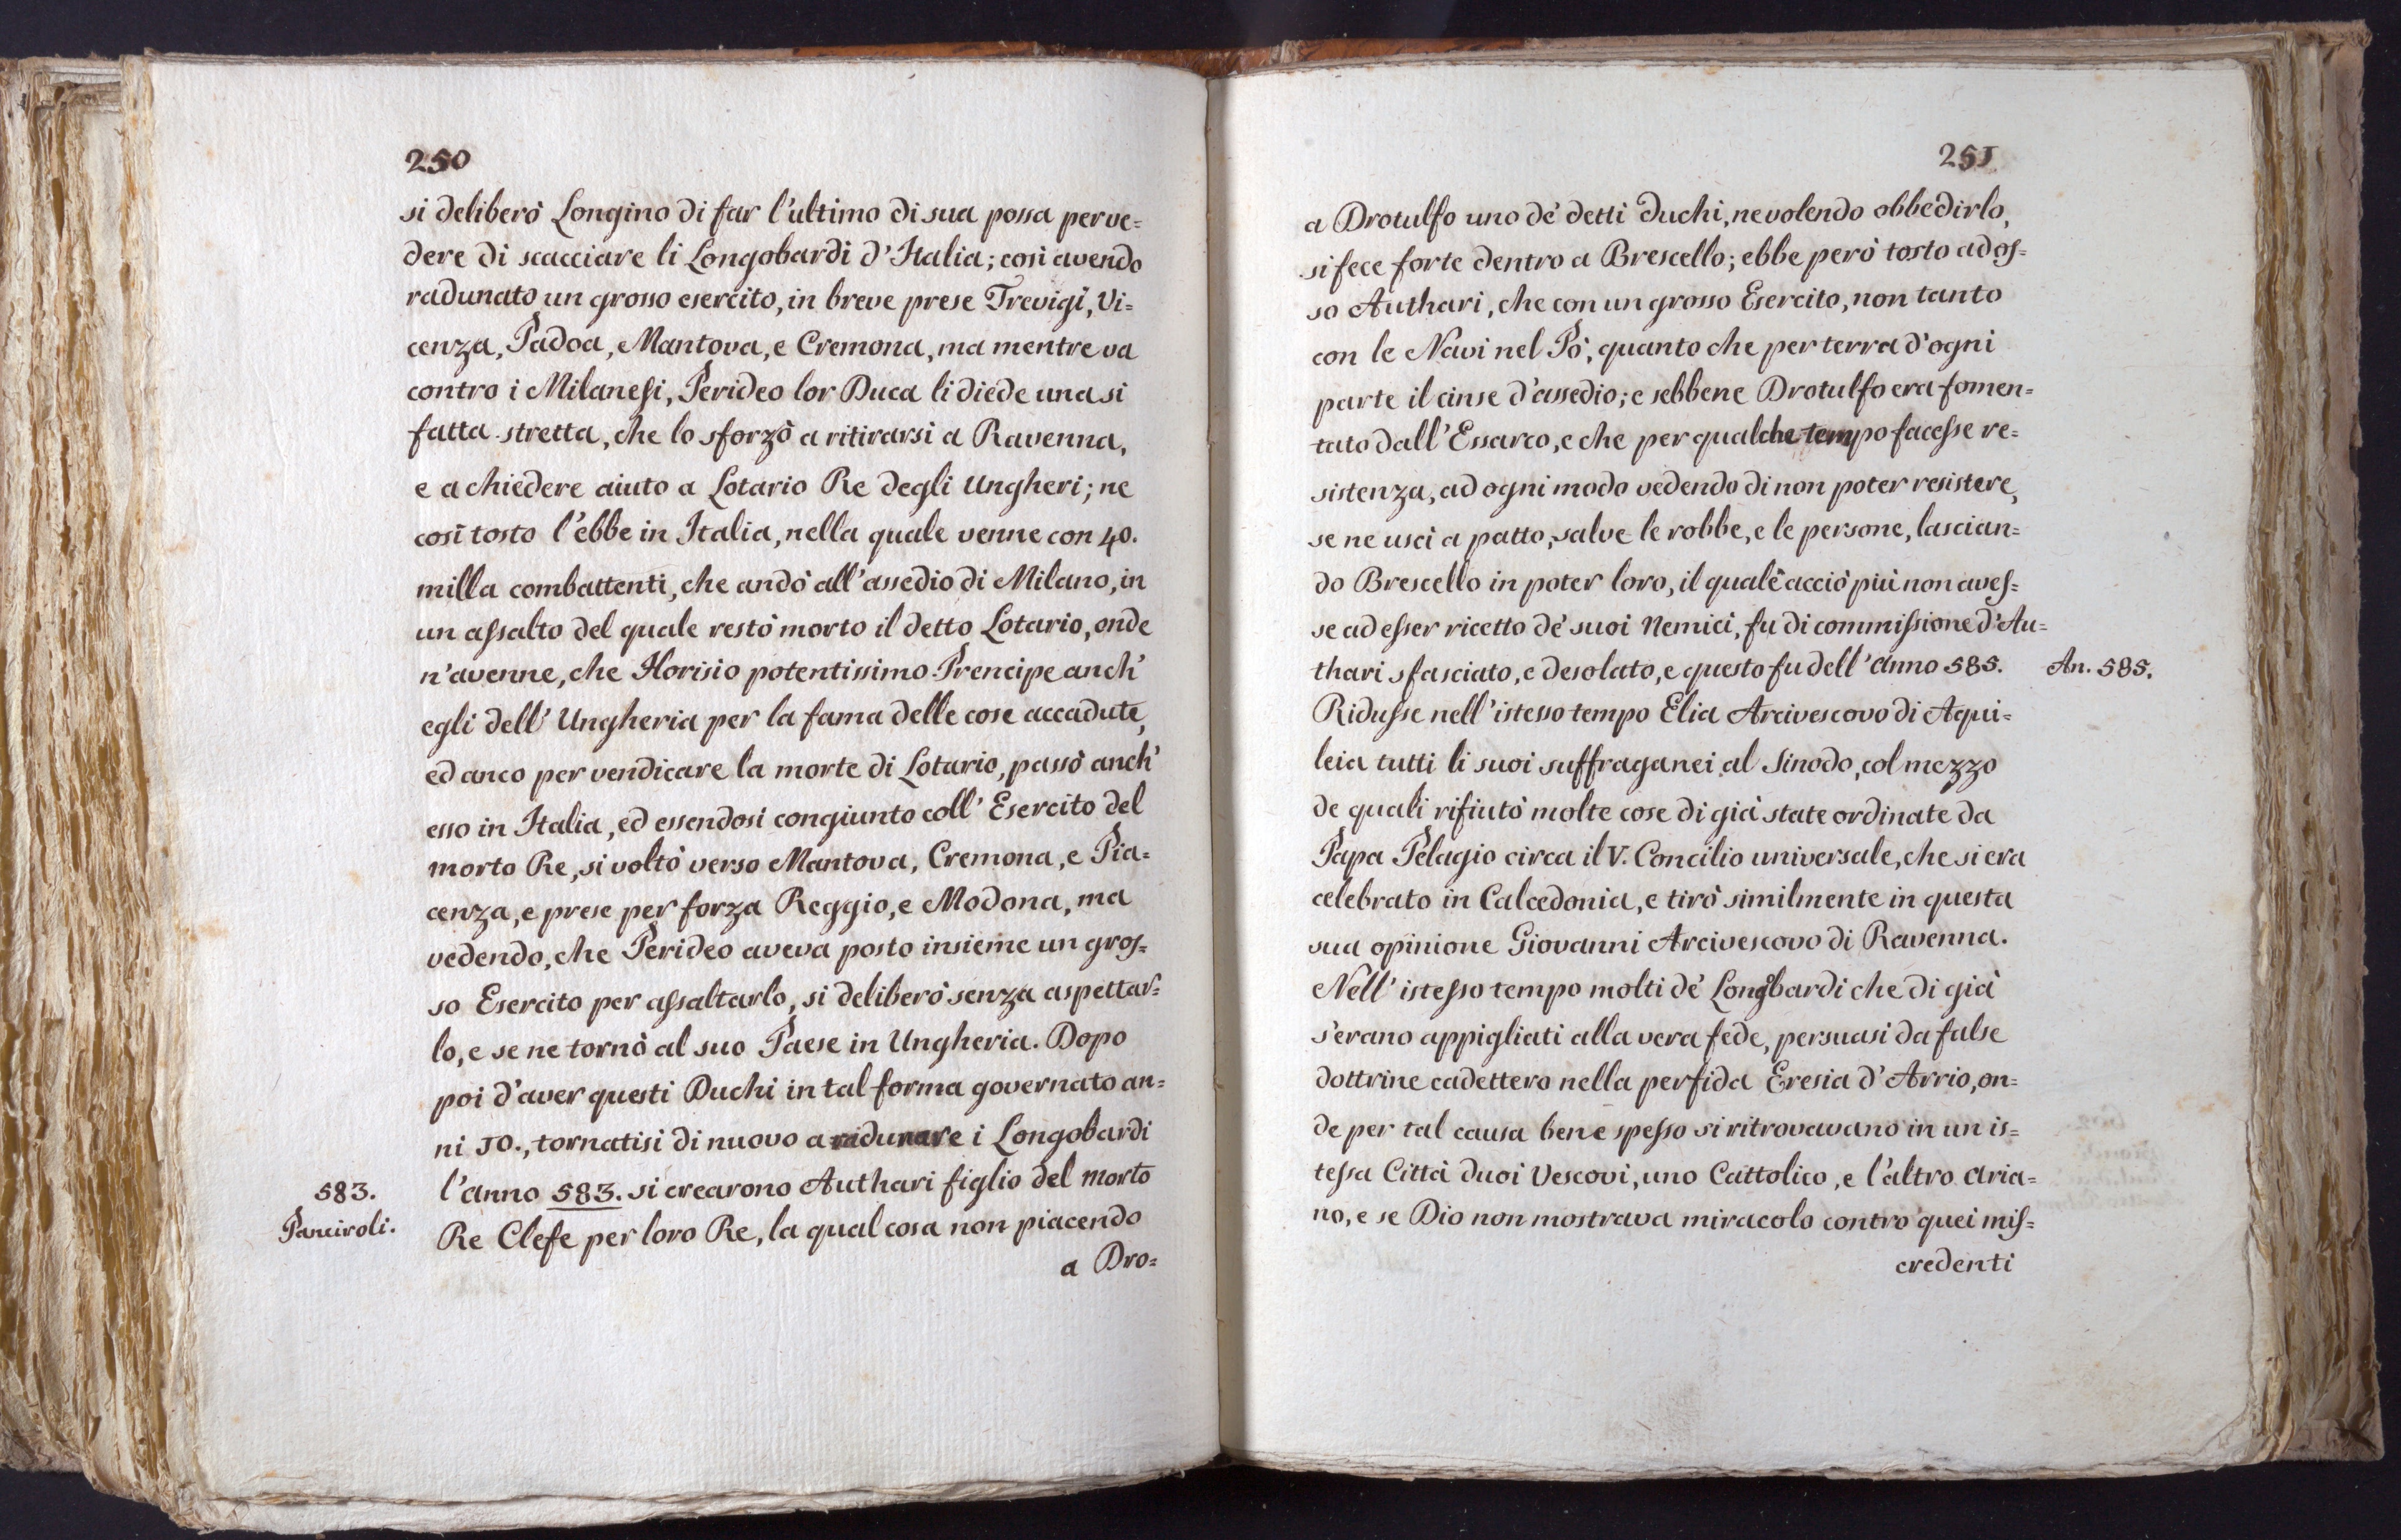 250
si deliberò Longino di far l'ultimo di sua possa per ve=
dere di scacciare li Longobardi d'Italia; così avendo
radunato un grosso esercito, in breve prese Trevigi, Vi=
cenza, Padoa, Mantova, e Cremona, ma mentre va
contro i Milanesi, Perideo lor Duca li diede una si
fatta stretta, che lo sforzò a ritirarsi a Ravenna,
e a chiedere aiuto a Lotario Re degli Ungheri; ne
così tosto l'ebbe in Italia, nella quale venne con 40.
milla combattenti, che andò all'assedio di Milano, in
un assalto del quale restò morto il detto Lotario, onde
n'avenne, che Horisio potentissimo Prencipe anch'
egli dell'Ungheria per la fama delle cose accadute,
ed anco per vendicare la morte di Lotario, passò anch'
esso in Italia, ed essendosi congiunto coll'Esercito del
morto Re, si voltò verso Mantova, Cremona, e Pia=
cenza, e prese per forza Reggio, e Modona, ma
vedendo, che Perideo aveva posto insieme un gros=
so Esercito per assaltarlo, si deliberò senza aspettar=
lo, e se ne tornò al suo Paese in Ungheria. Dopo
poi d'aver questi Duchi in tal forma governato an=
ni 10., tornatisi di nuovo a radunare i Longobardi
583.
l'anno 583. si crearono Authari figlio del morto
Panciroli.
Re Clefe per loro Re, la qual cosa non piacendo
a Dro=
251
a Drotulfo uno de' detti Duchi, ne volendo obbedirlo,
si fece forte dentro a Brescello; ebbe però tosto ados=
so Authari, che con un grosso Esercito, non tanto
con le Navi nel Pò, quanto che per terra d'ogni
parte il cinse d'assedio; e sebbene Drotulfo era fomen=
tato dall'Essarco, e che per qualche tempo facesse re=
sistenza, ad ogni modo vedendo di non poter resistere,
se ne uscì a patto, salve le robbe, e le persone, lascian=
do Brescello in poter loro, il quale acciò più non aves=
se ad esser ricetto de' suoi Nemici, fu di commissione d'Au=
thari sfasciato, e desolato, e questo fu dell'anno 585.
An. 585.
Ridusse nell'istesso tempo Elia Arcivescovo di Aqui=
leia tutti li suoi suffraganei al Sinodo, col mezzo
de quali rifiutò molte cose di già state ordinate da
Papa Pelagio circa il V. Concilio universale, che si era
celebrato in Calcedonia, e tirò similmente in questa
sua opinione Giovanni Arcivescovo di Ravenna.
Nell'istesso tempo molti de' Longobardi che di già
s'erano appigliati alla vera fede, persuasi da false
dottrine cadettero nella perfida Eresia d'Arrio, on=
de per tal causa bene spesso si ritrovavano in un is=
tessa Città duoi Vescovi, uno Cattolico, e l'altro Aria=
no, e se Dio non mostrava miracolo contro quei mis=
credenti